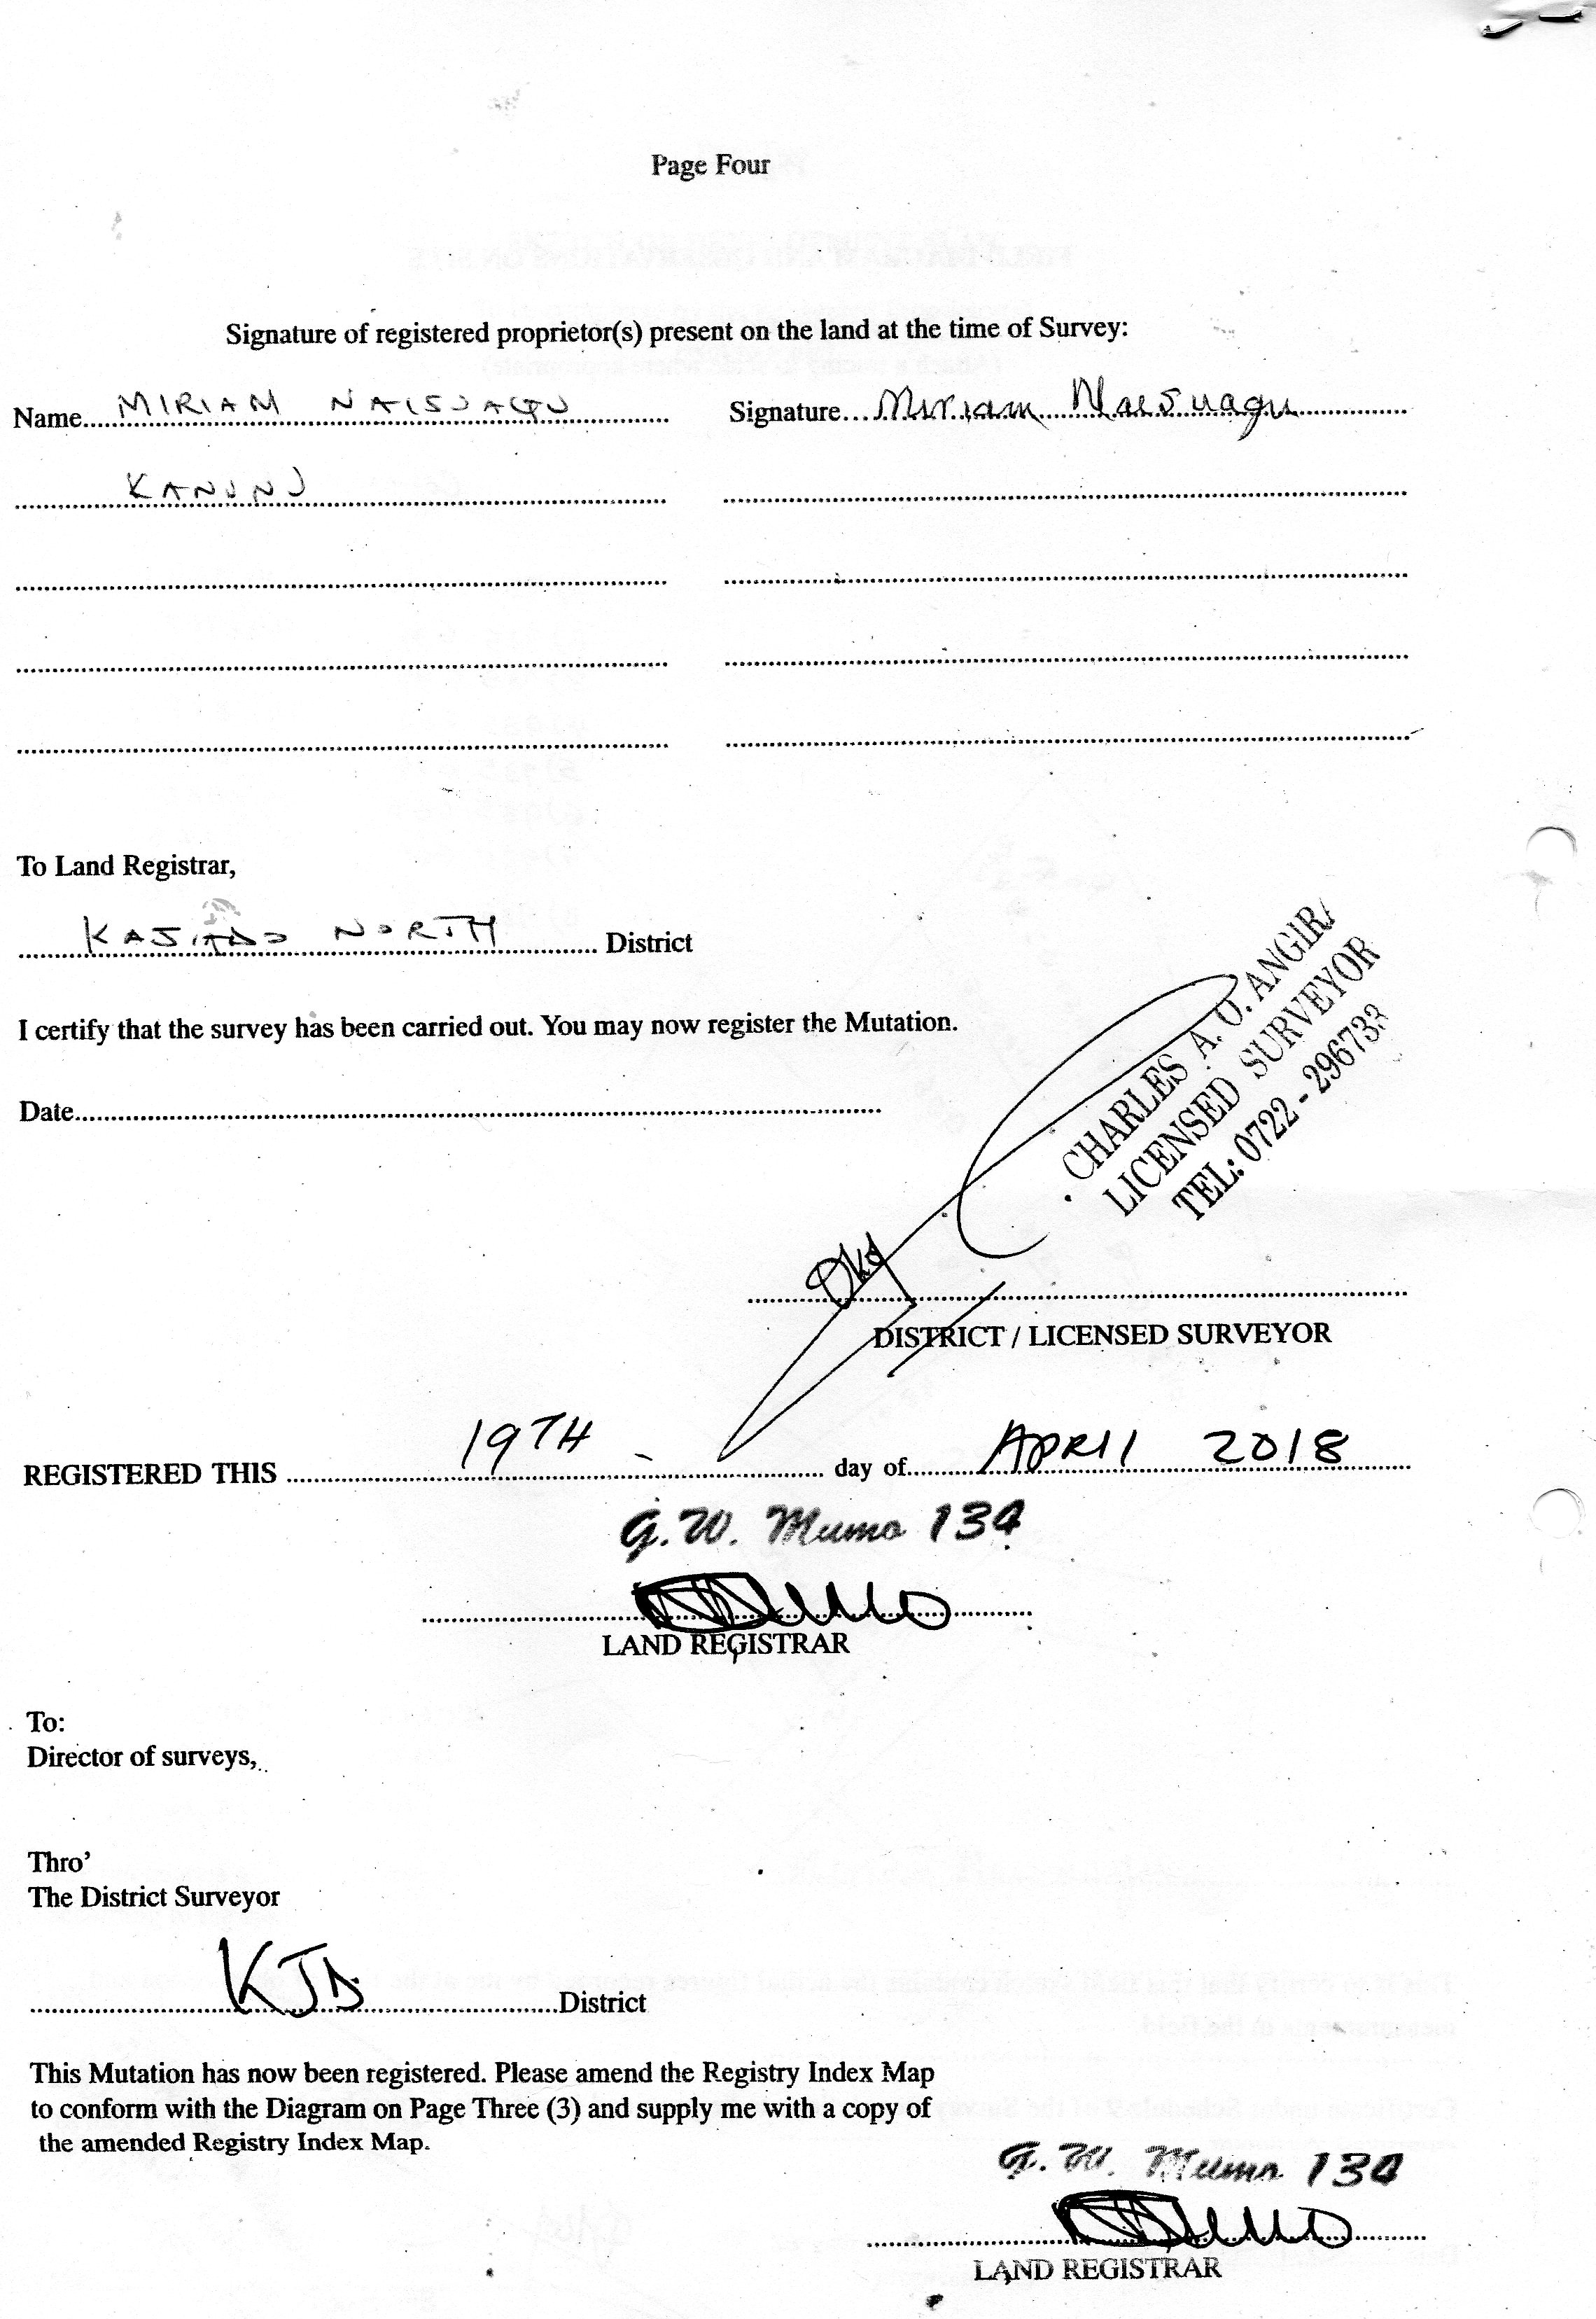 Page Four
Signature of registered proprietor(s) present on the land at the time of Survey:
Name....MIRIAM NAISUAGU.... Signature...Miriam Naisuagu....
KANUNU
To Land Registrar,
KAJIADO NORTH District
I certify that the survey has been carried out. You may now register the Mutation.
Date
CHARLES A. O. ANGIRA
LICENSED SURVEYOR
TEL: 0722 - 296733
DISTRICT / LICENSED SURVEYOR
REGISTERED THIS 19TH day of APRIL 2018
G.W. Mumo 134
LAND REGISTRAR
To:
Director of surveys,
Thro'
The District Surveyor
KJD District
This Mutation has now been registered. Please amend the Registry Index Map
to conform with the Diagram on Page Three (3) and supply me with a copy of
the amended Registry Index Map.
G.W. Mumo 134
LAND REGISTRAR